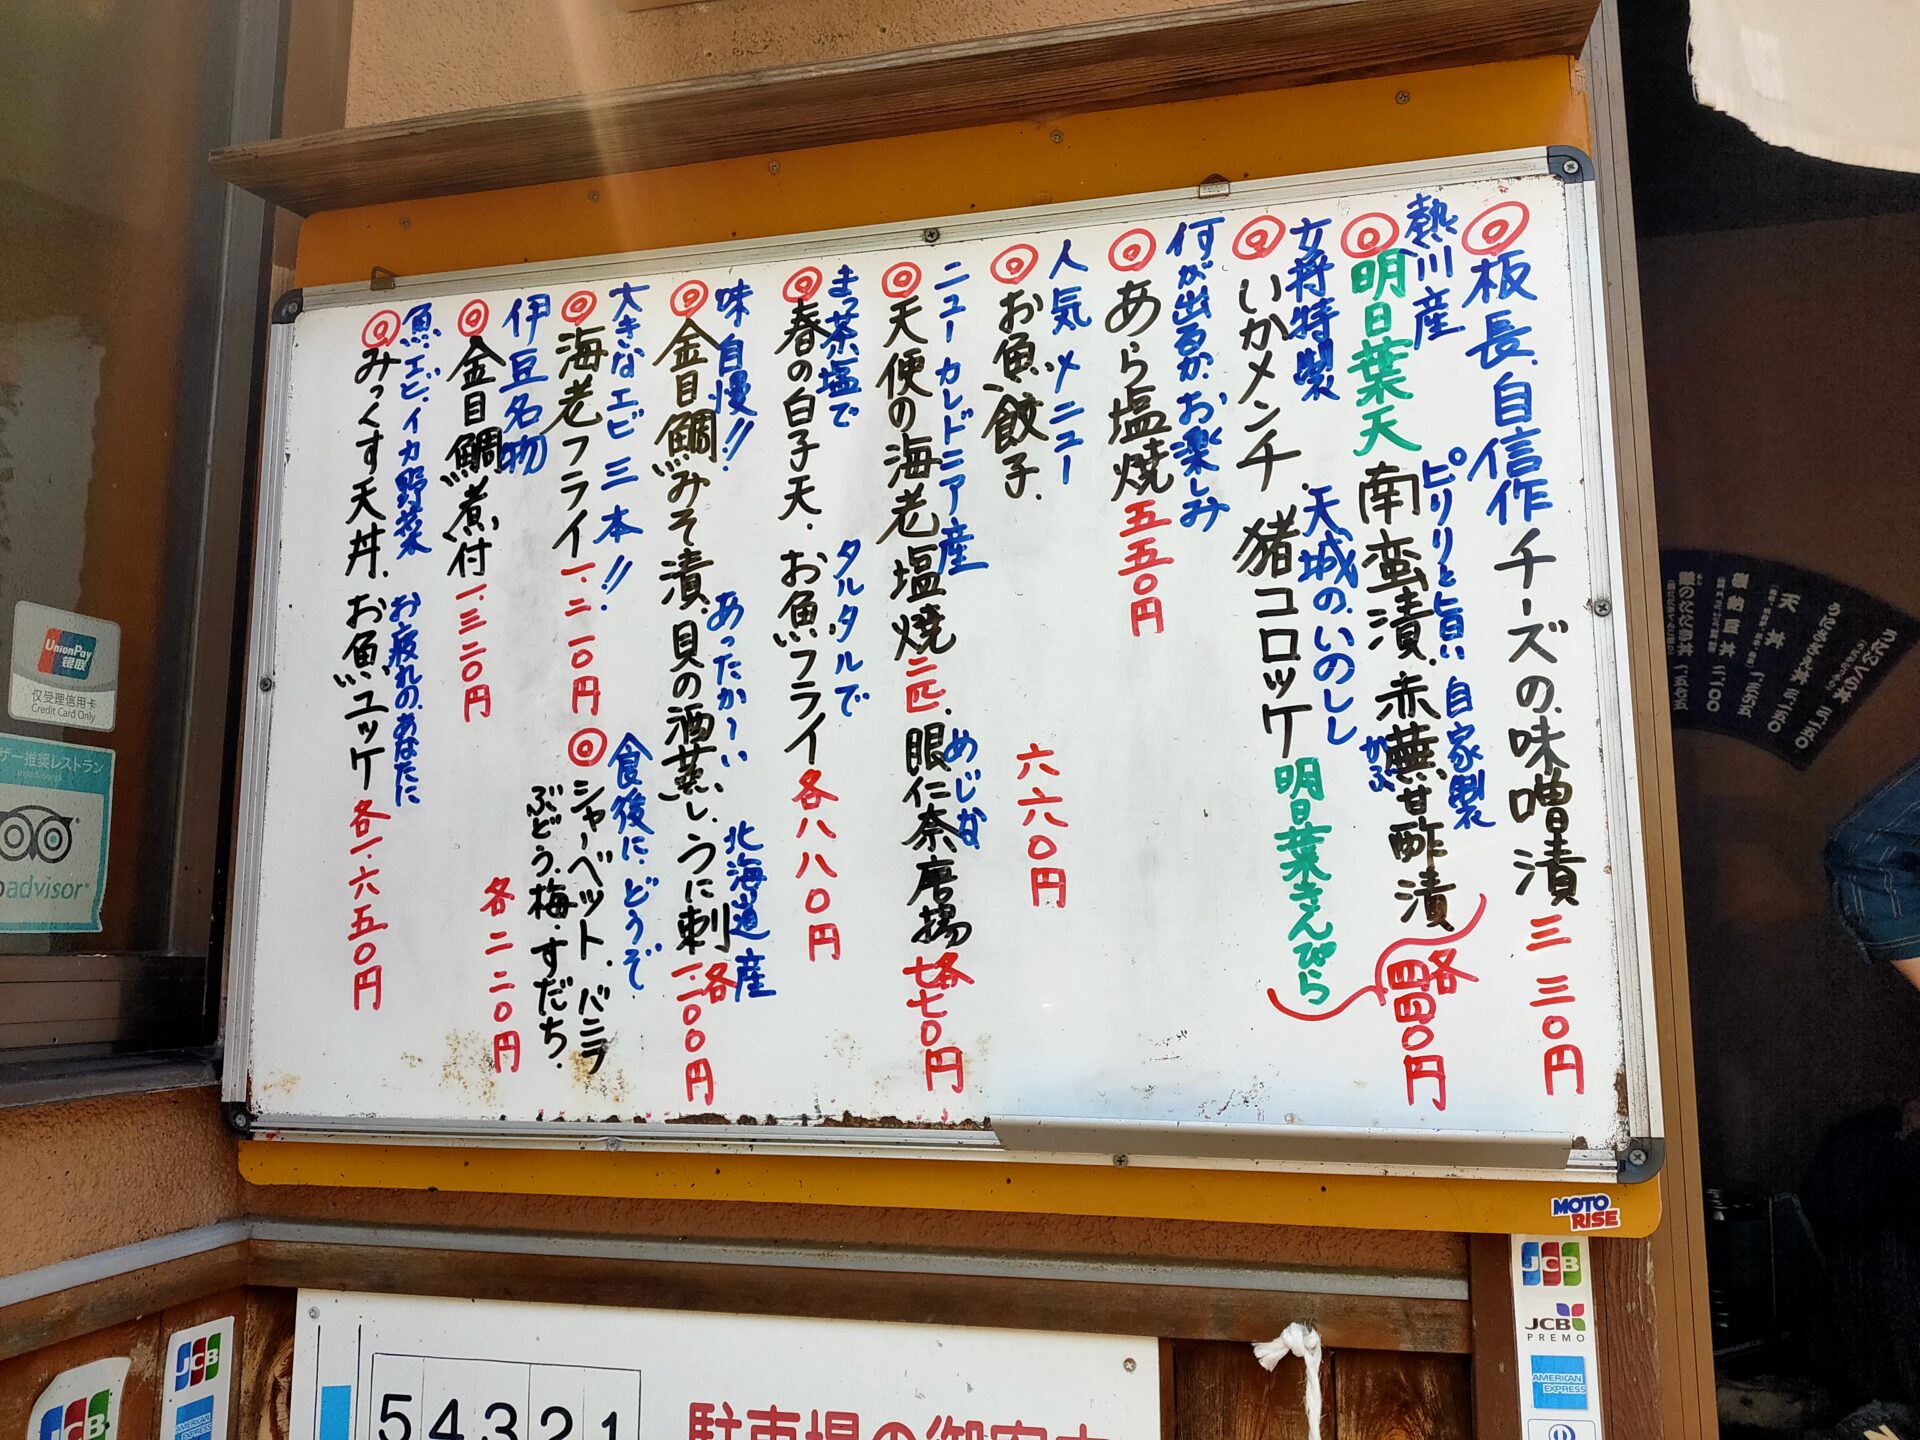 ◎板長、自信作 チーズの味噌漬 三三〇円
熱川産 ピリリと旨い 自家製 かぶ
◎明日葉天 南蛮漬、赤蕪甘酢漬 各四四〇円
女将特製 天城の、いのしし
◎いかメンチ、猪コロッケ 明日葉きんぴら
何が出るか、お楽しみ
◎あら塩焼 五五〇円
人気メニュー
◎お魚餃子、 六六〇円
ニューカレドニア産 めじな
◎天使の海老塩焼二匹、眼仁奈唐揚 各七七〇円
まっ茶塩で タルタルで
◎春の白子天、お魚フライ 各八八〇円
味自慢!! あったか〜い 北海道産
◎金目鯛みそ漬、貝の酒蒸し、うに刺 各一、一〇〇円
大きなエビ三本!!
◎海老フライ 一、二一〇円
食後に、どうぞ
◎シャーベット、バニラ
ぶどう、梅、すだち、
各二二〇円
伊豆名物
◎金目鯛煮付 一、三二〇円
魚、エビ、イカ、野菜 お疲れの、あなたに
◎みっくす天丼、お魚ユッケ 各一、六五〇円
UnionPay
银联
仅受理信用卡
Credit Card Only
ザー推奨レストラン
advisor
天丼
MOTO
RISE
JCB
JCB
PREMO
AMERICAN
EXPRESS
JCB
AMERICAN
EXPRESS
JCB
54321
駐車場の御案内